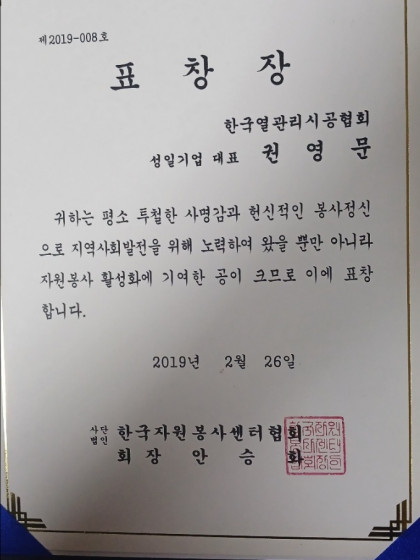 제2019-008호
표 창 장
한국열관리시공협회
성일기업 대표 권 영 문
귀하는 평소 투철한 사명감과 헌신적인 봉사정신
으로 지역사회발전을 위해 노력하여 왔을 뿐만 아니라
자원봉사 활성화에 기여한 공이 크므로 이에 표창
합니다.
2019년 2월 26일
사단법인 한국자원봉사센터협회
회 장 안 승 화